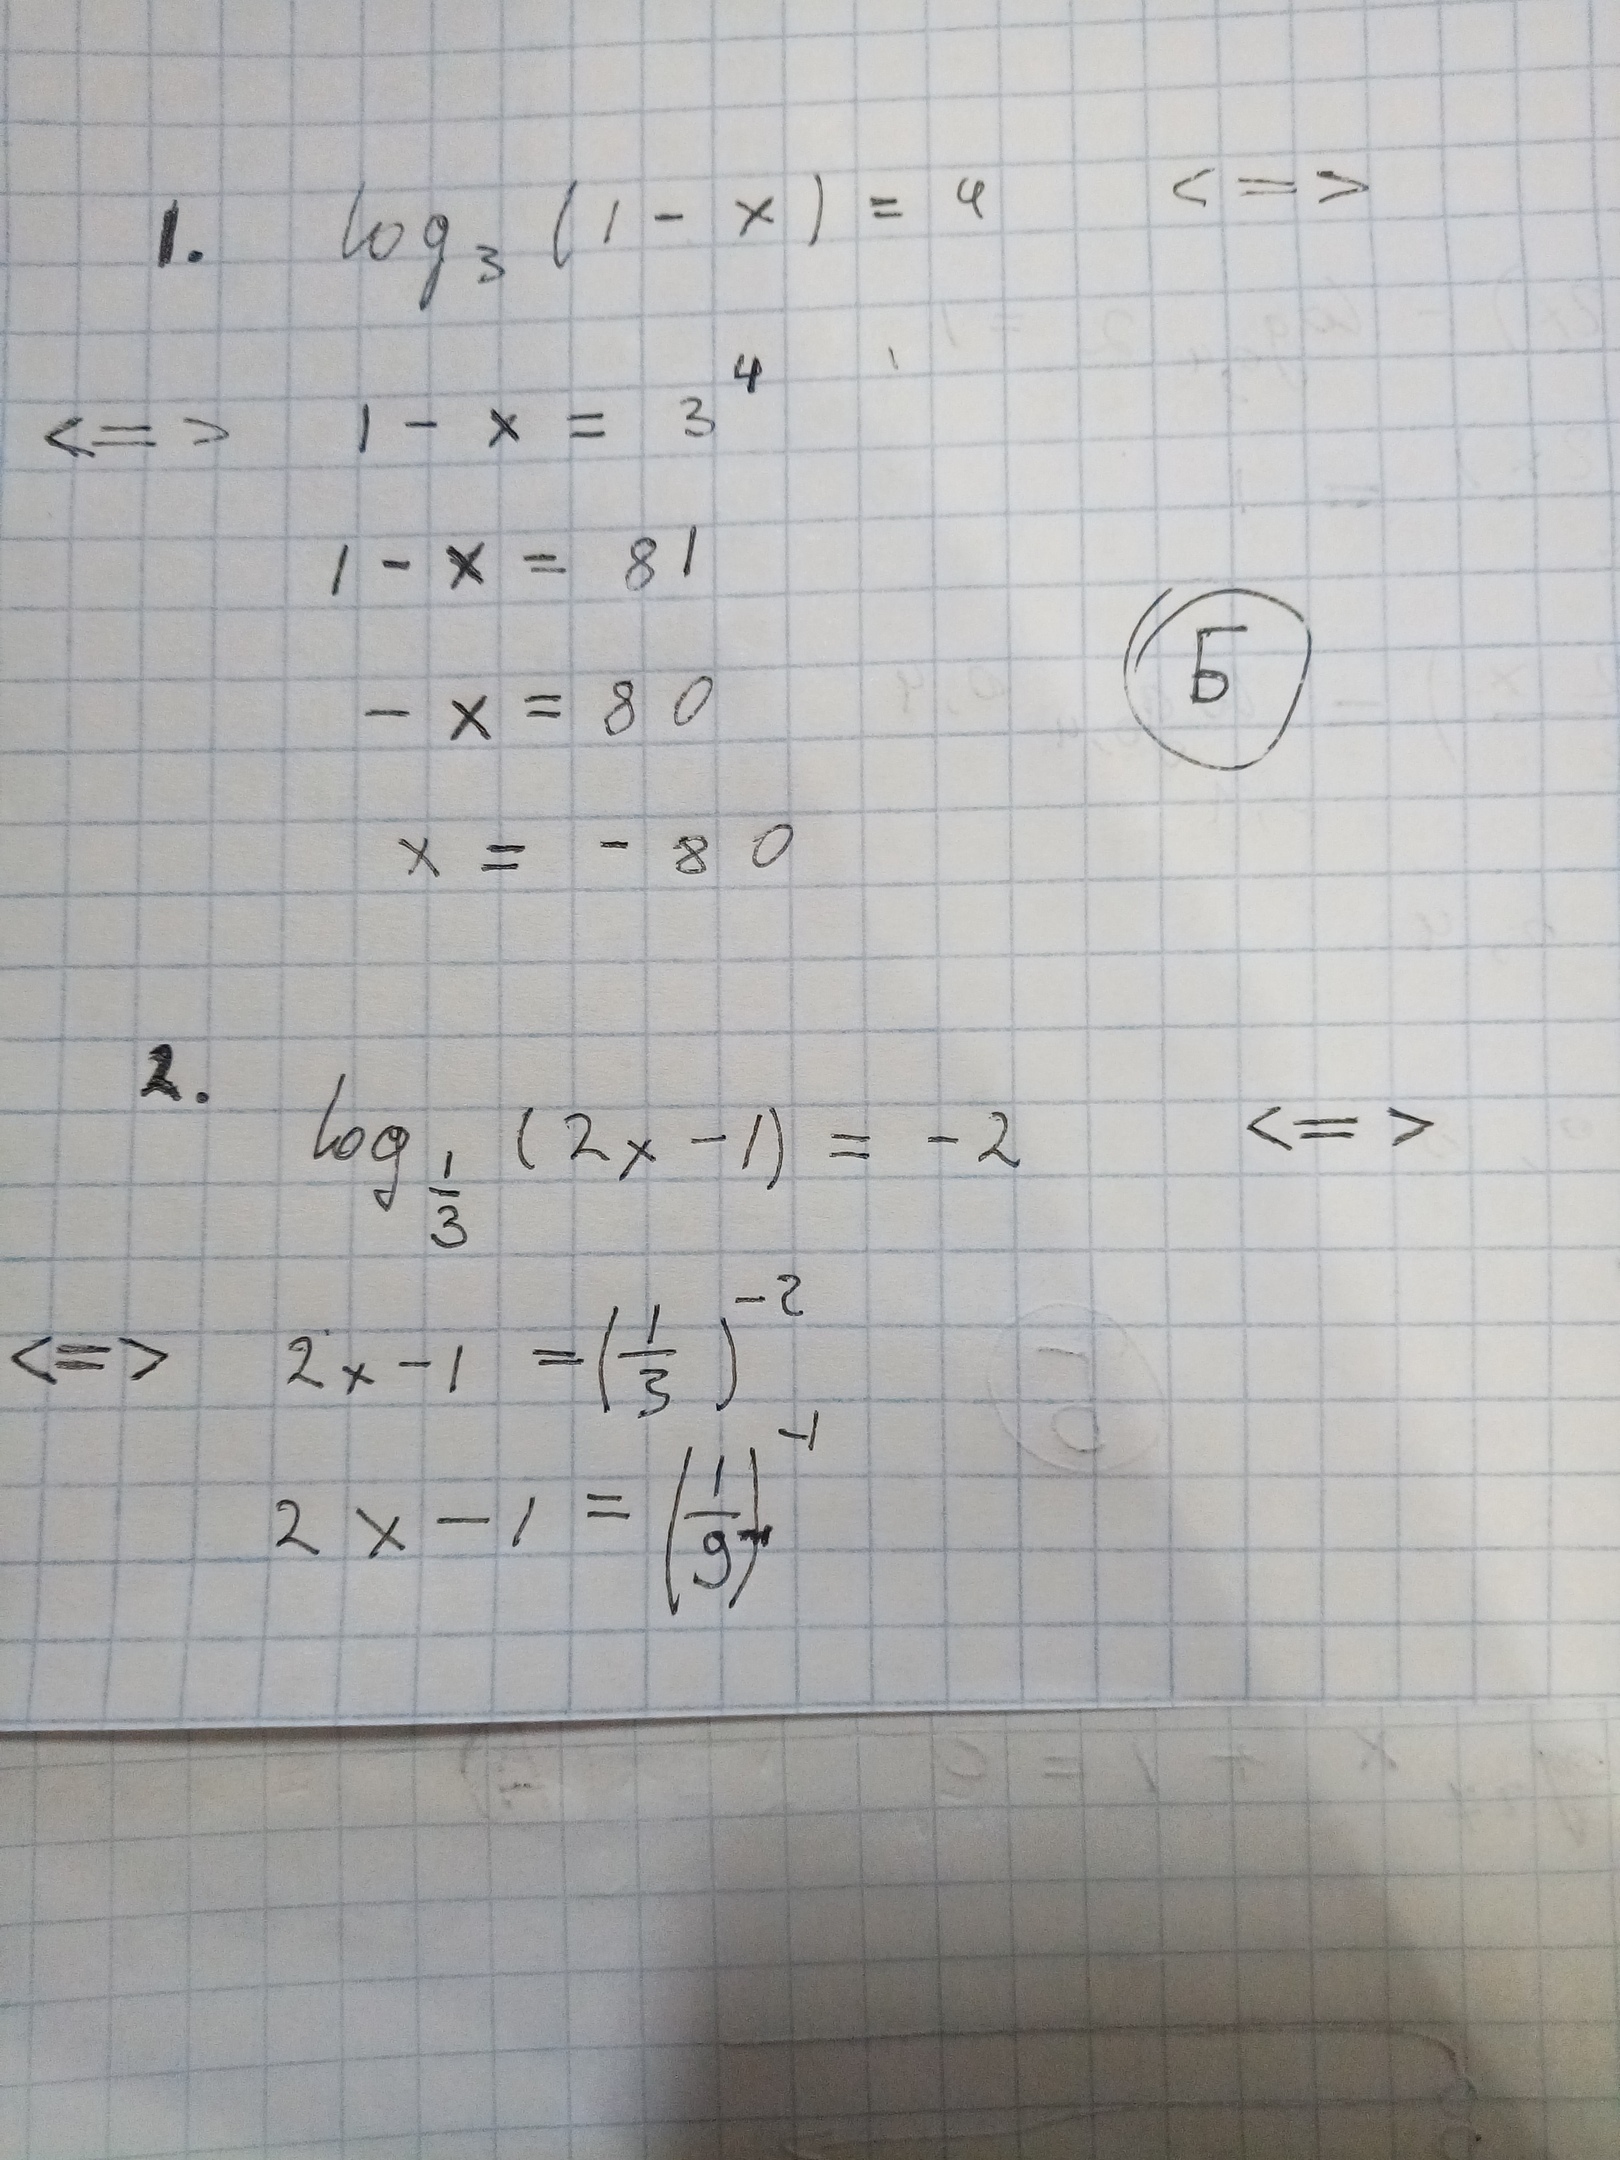 1. log₃ (1 - x) = 4 <=>
<=> 1 - x = 3⁴
1 - x = 81
Б
- x = 80
x = - 80
2. log_{1/3} (2x - 1) = -2 <=>
<=> 2x - 1 = (1/3)⁻²
2x - 1 = (1/9)⁻¹